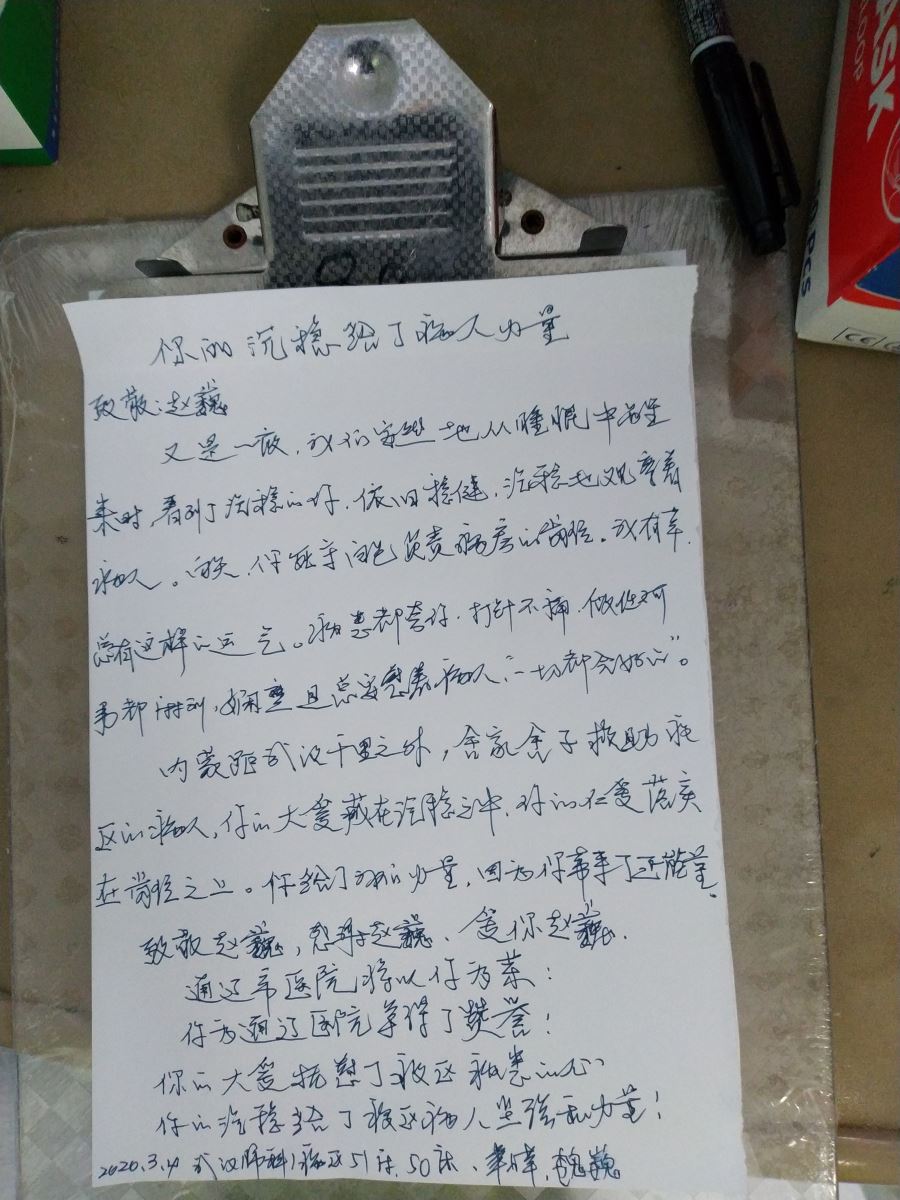 MASK
LOOP
PCS
CE
你的沉稳给了病人力量
致敬:赵巍
又是一夜,我们安然地从睡眠中醒
来时,看到了沉稳的你,依旧稳健,沉稳地观察着
病人。白天,你独立负责病房的岗位。我有幸
总有这样的运气。病患都夸你,打针不痛,做任何
事都,且总安慰着病人:“一切都会好的”。
内蒙距武汉千里之外,舍家舍子救助疫
区的病人,你的大爱藏在沉稳之中,你的仁爱落实
在岗位之上。你给了我们力量,因为你带来了正能量。
致敬赵巍,感谢赵巍、爱你赵巍。
通辽市医院将以你为荣:
你为通辽医院争得了赞誉!
你的大爱抚慰了疫区病患的心
你的沉稳给了疫区病人坚强和力量!
2020.3.4 武汉肺科1病区51床、50床、